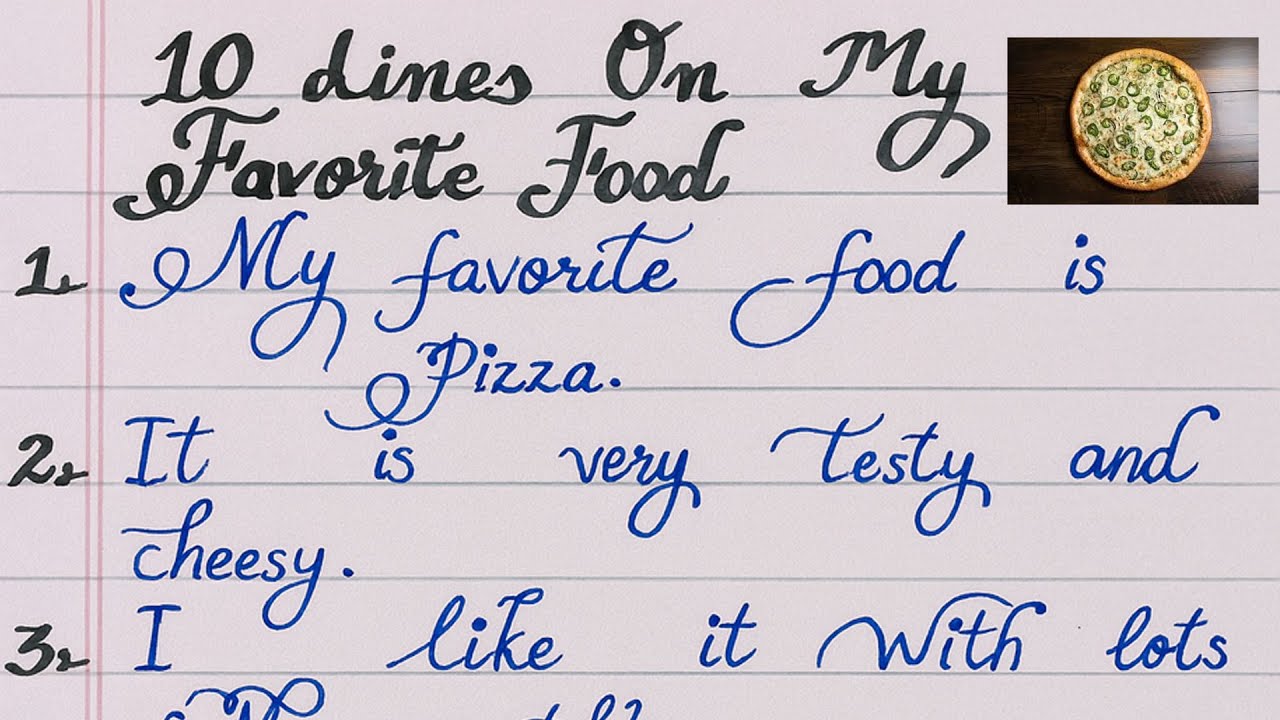 10 Lines On My
Favorite Food
1. My favorite food is
Pizza.
2. It is very testy and
cheesy.
3. I like it with lots